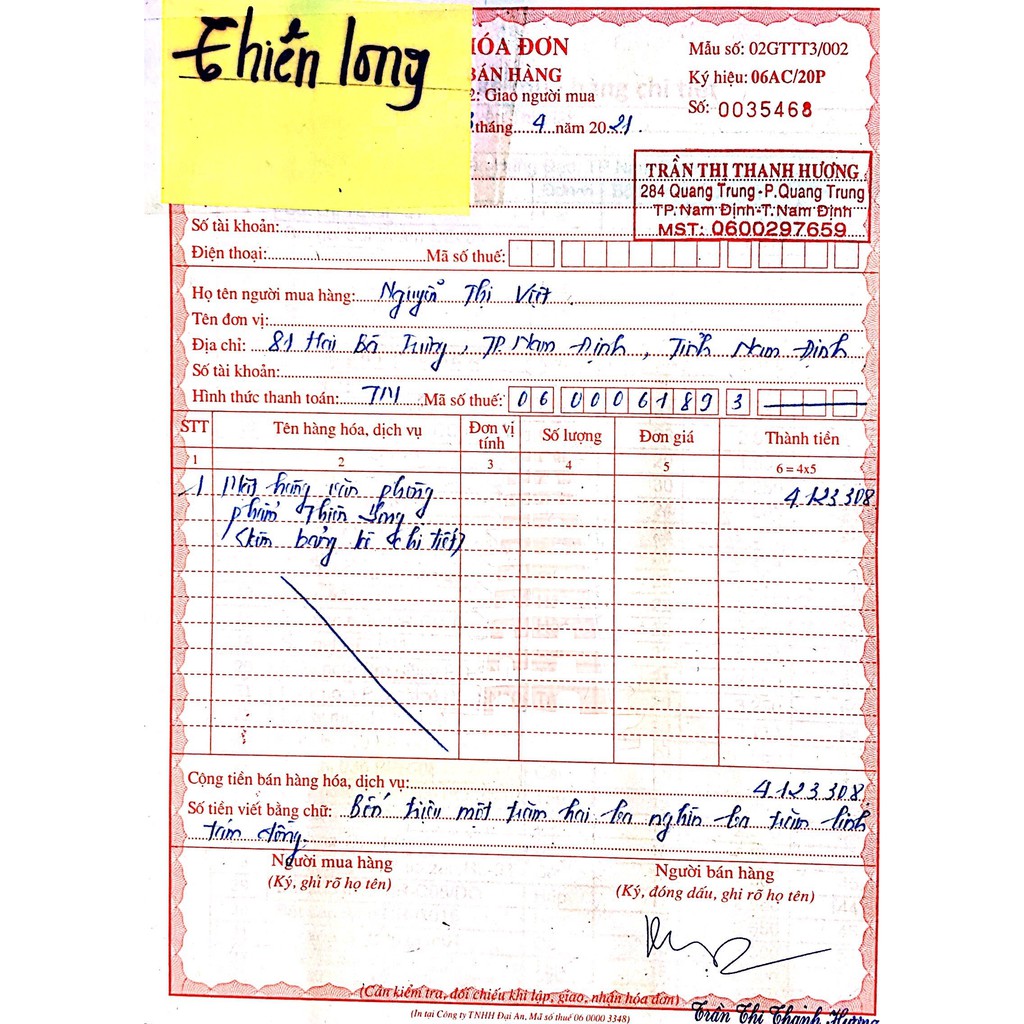 Thiên long
HÓA ĐƠN
BÁN HÀNG
2: Giao người mua
tháng 4 năm 2021.
Mẫu số: 02GTTT3/002
Ký hiệu: 06AC/20P
Số: 0035468
TRẦN THỊ THANH HƯƠNG
284 Quang Trung - P.Quang Trung
TP. Nam Định-T. Nam Định
MST: 0600297659
Số tài khoản:
Điện thoại: Mã số thuế:
Họ tên người mua hàng: Nguyễn Thị Việt
Tên đơn vị:
Địa chỉ: 81 Hai Bà Trưng, TP. Nam Định, Tỉnh Nam Định
Số tài khoản:
Hình thức thanh toán: TM Mã số thuế: 0600061893
STT Tên hàng hóa, dịch vụ Đơn vị tính Số lượng Đơn giá Thành tiền
1 2 3 4 5 6 = 4x5
1 Mặt hàng văn phòng 4.123.308
phẩm Thiên Long
(Kèm bảng kê chi tiết)
Cộng tiền bán hàng hóa, dịch vụ: 4.123.308
Số tiền viết bằng chữ: Bốn triệu một trăm hai ba nghìn ba trăm linh
tám đồng.
Người mua hàng
(Ký, ghi rõ họ tên)
Người bán hàng
(Ký, đóng dấu, ghi rõ họ tên)
(Cần kiểm tra, đối chiếu khi lập, giao, nhận hóa đơn)
(In tại Công ty TNHH Đại An, Mã số thuế 06 0000 3348)
Trần Thị Thanh Hương